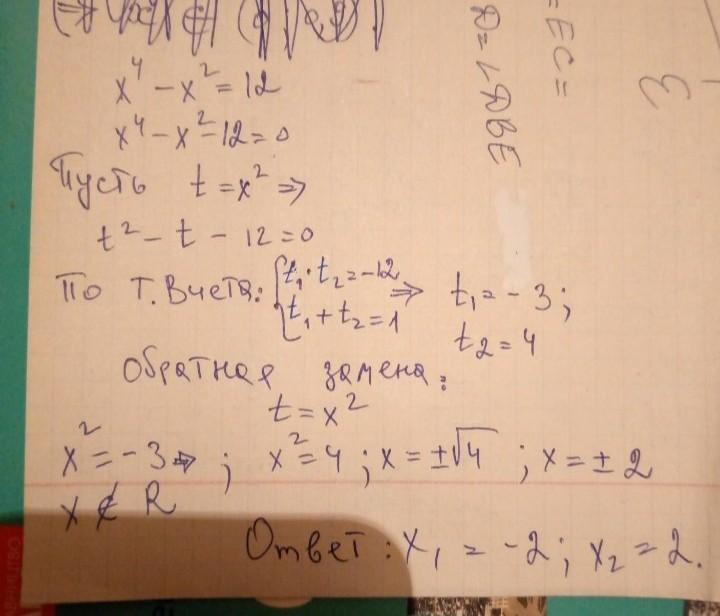 x⁴ - x² = 12
x⁴ - x² - 12 = 0
Пусть t = x² ⇒
t² - t - 12 = 0
По т. Виета: { t₁ · t₂ = -12 ⇒ t₁ = -3;
t₁ + t₂ = 1 t₂ = 4
Обратная замена:
t = x²
x² = -3 ⇒ ; x² = 4 ; x = ±√4 ; x = ± 2
x ∉ R
Ответ: x₁ = -2; x₂ = 2.
= EC =
D = 2 DBE